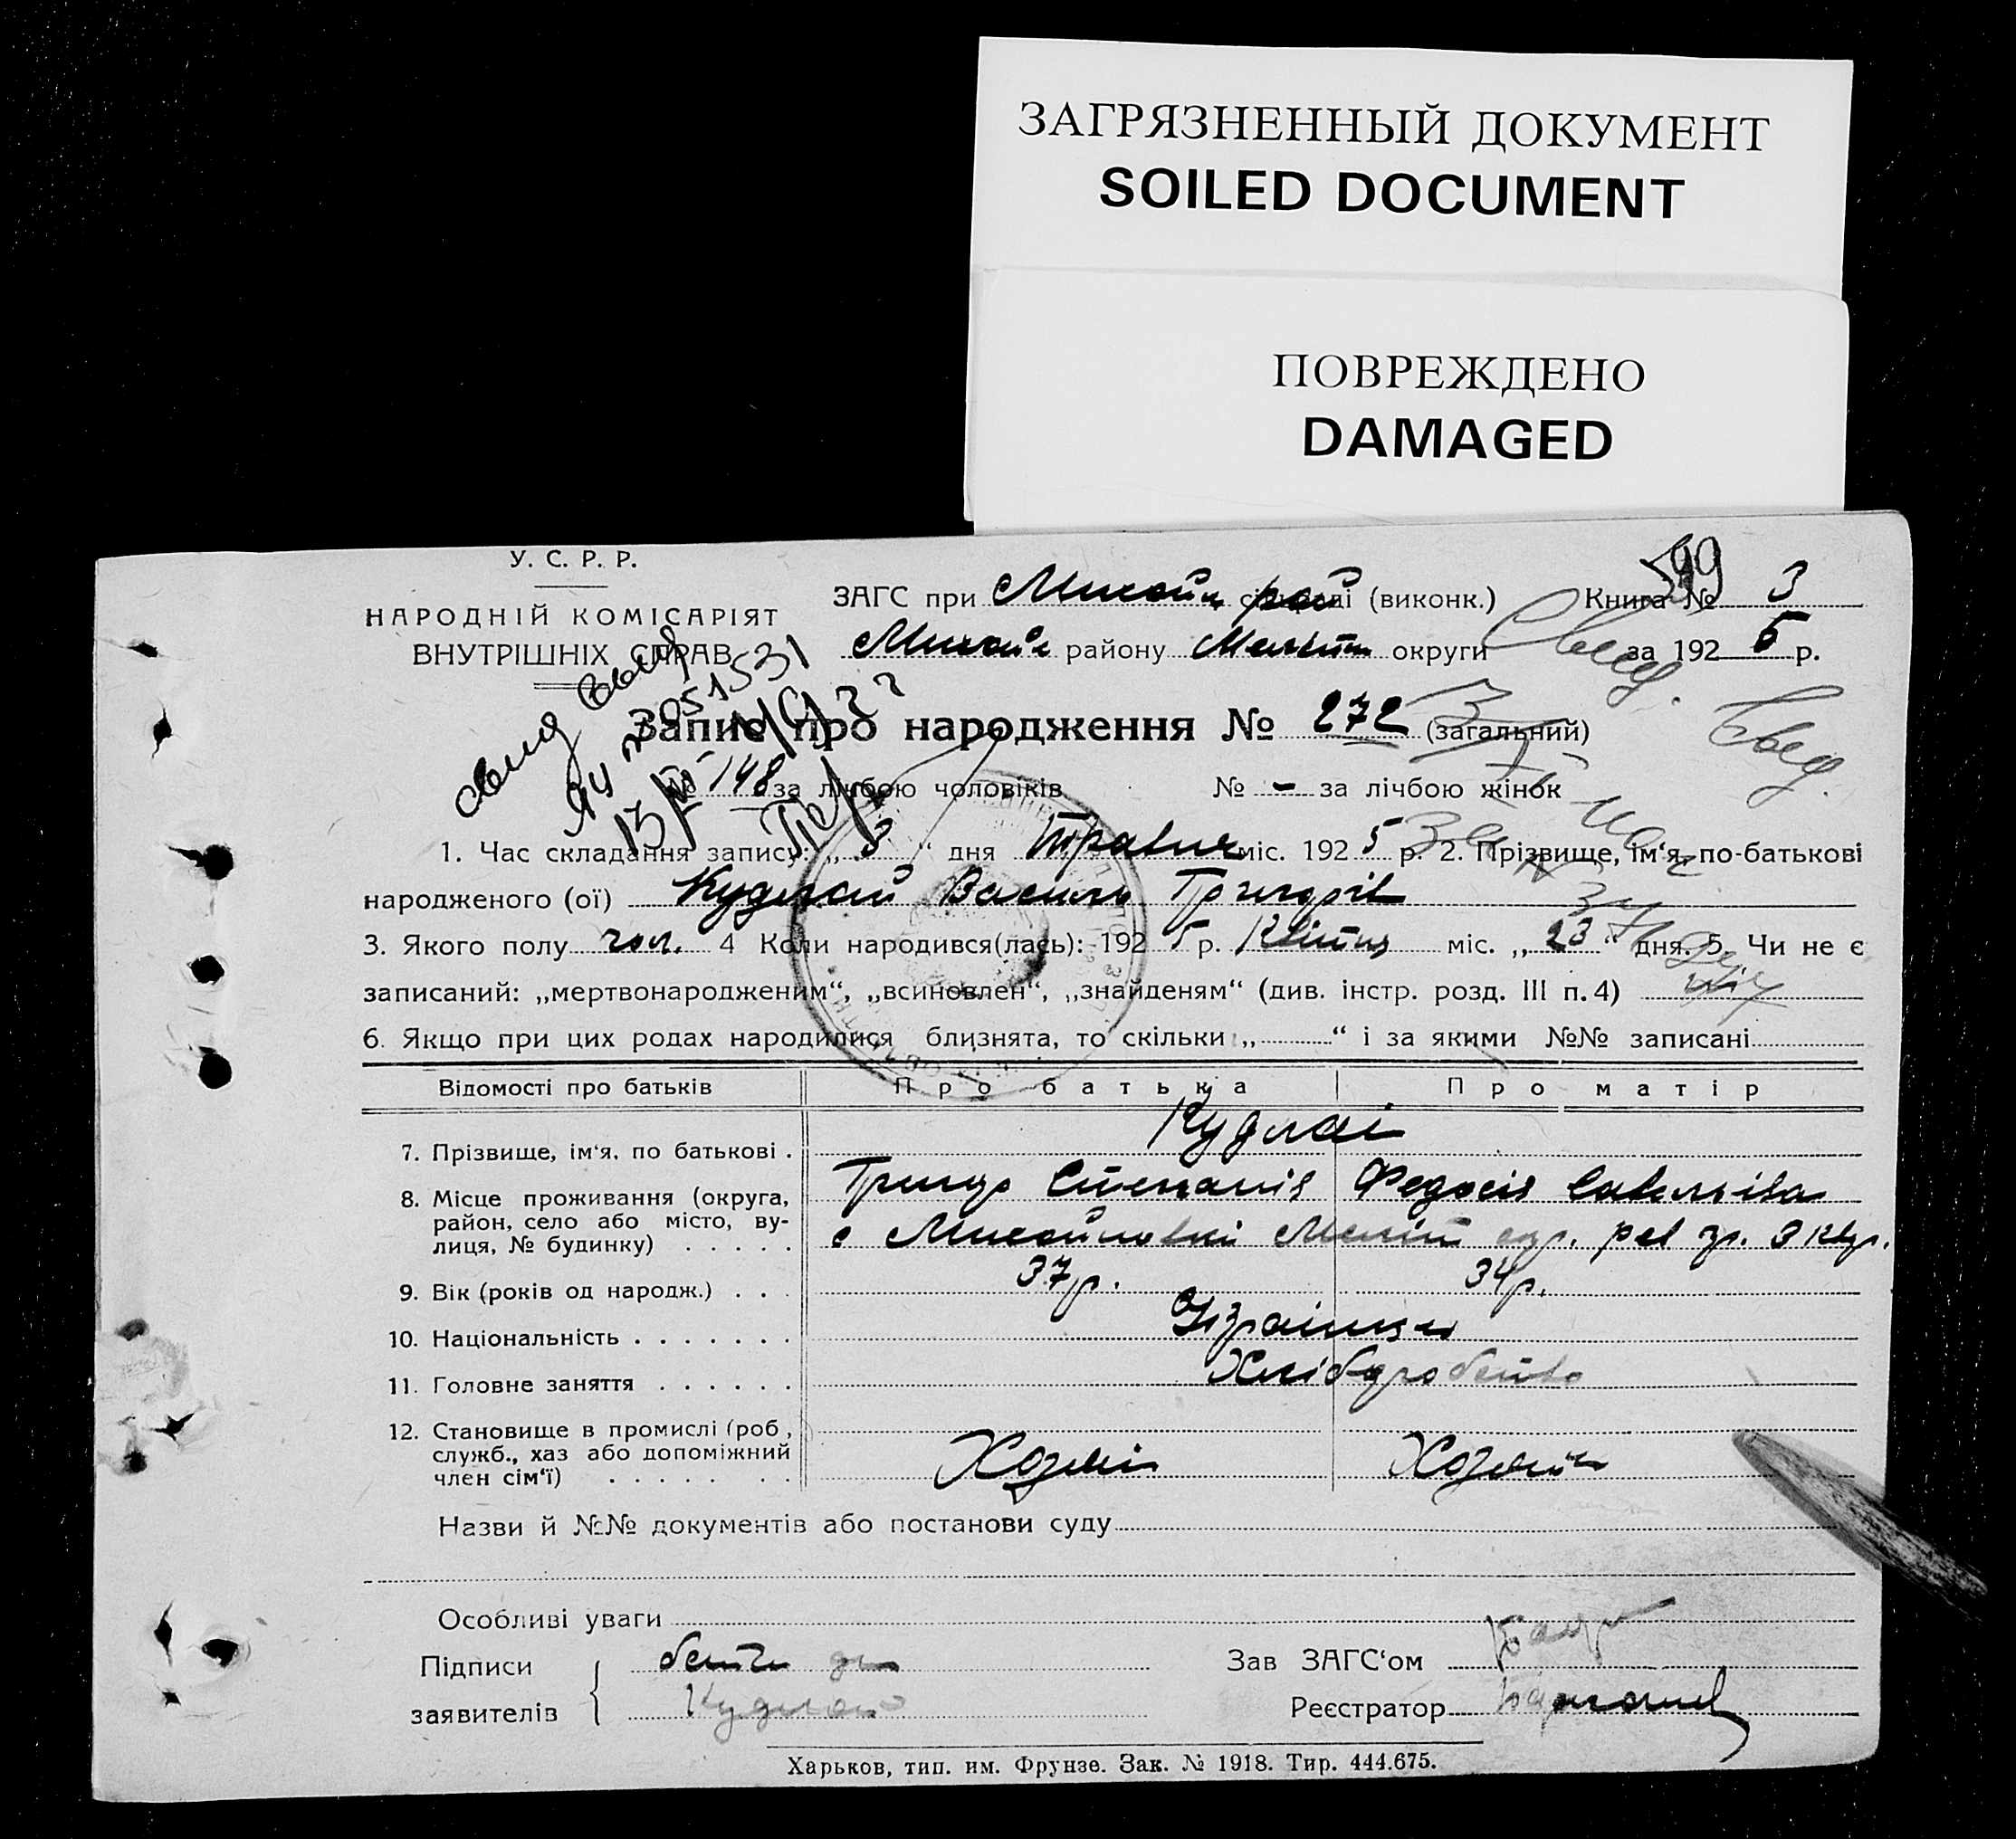 ЗАГРЯЗНЕННЫЙ ДОКУМЕНТ
SOILED DOCUMENT
ПОВРЕЖДЕНО
DAMAGED
У. С. Р. Р.
НАРОДНІЙ КОМІСАРІЯТ
ВНУТРІШНІХ СПРАВ
599
ЗАГС при Михайл рай (виконк.) Книга № 3
Михайл району Меліт округи за 1925 р.
Запис про народження № 272 (загальний)
№ 148 за лічбою чоловіків № - за лічбою жінок
1. Час складання запису: „ 3 “ дня Травня міс. 1925 р. 2. Прізвище, ім‘я, по-батькові
народженого (ої) Кудлай Василь Григорів
3. Якого полу чол. 4 Коли народився(лась): 1925 р. Квітня міс. „ 23 “ дня. 5. Чи не є
записаний: „мертвонародженим“, „всиновлен“, „знайденям“ (див. інстр. розд. III п. 4)
6. Якщо при цих родах народилися близнята, то скільки „ “ і за якими №№ записані
Відомості про батьків Про батька Про матір
7. Прізвище, ім‘я, по батькові . Кудлаї
Григор Степанів Федосія Савельівна
8. Місце проживання (округа,
район, село або місто, ву-
лиця, № будинку) . . . . . с Михайловкі Меліт окр. рев гр. 3 кв.
9. Вік (років од народж.) . . . 37 р. 34 р.
10. Національність . . . . . . . Українци
11. Головне заняття . . . . . . Хліборобство
12. Становище в промислі (роб.,
служб., хаз або допоміжний
член сім‘ї) . . . . . . . Хозяін Хозяйк
Назви й №№ документів або постанови суду
Особливі уваги
Підписи
заявителів Кудлай
Зав ЗАГС‘ом
Реєстратор
Харьков, тип. им. Фрунзе. Зак. № 1918. Тир. 444.675.